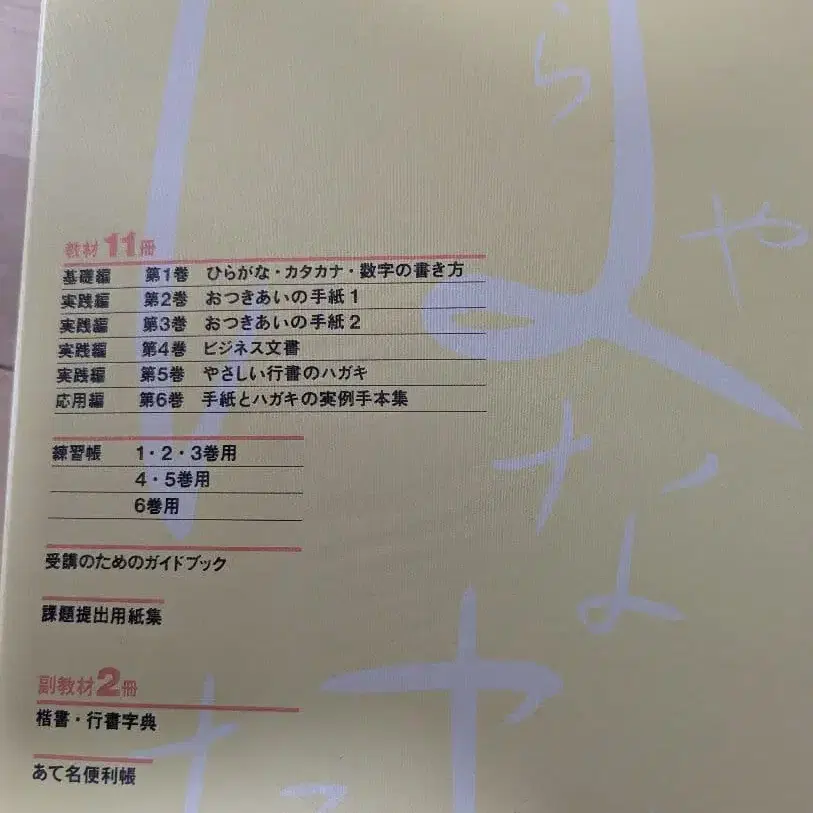 教材11冊
基礎編 第1巻 ひらがな・カタカナ・数字の書き方
実践編 第2巻 おつきあいの手紙1
実践編 第3巻 おつきあいの手紙2
実践編 第4巻 ビジネス文書
実践編 第5巻 やさしい行書のハガキ
応用編 第6巻 手紙とハガキの実例手本集
練習帳 1・2・3巻用
4・5巻用
6巻用
受講のためのガイドブック
課題提出用紙集
副教材2冊
楷書・行書字典
あて名便利帳
ら
や
な
よ